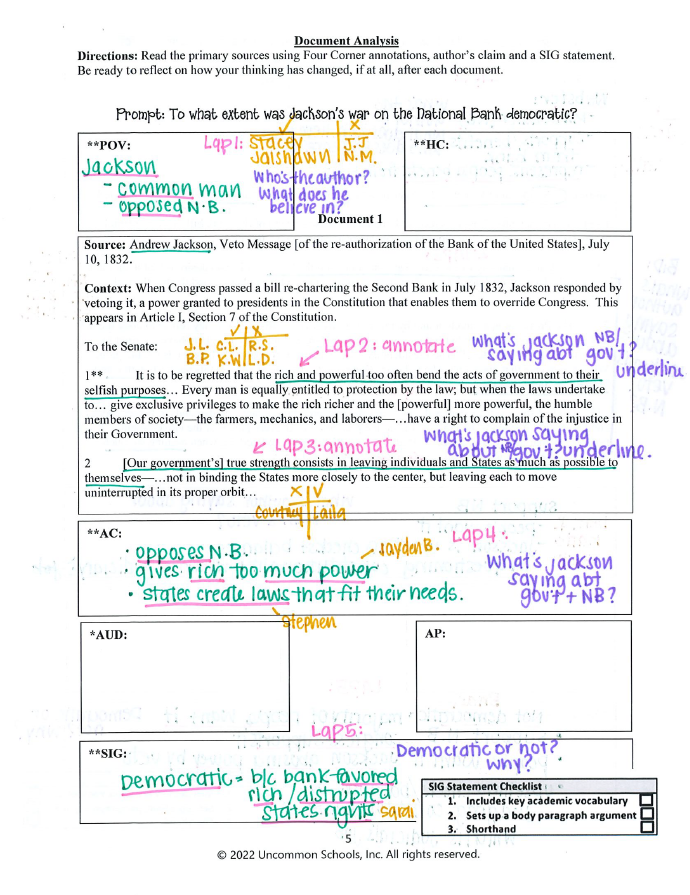 Document Analysis
Directions: Read the primary sources using Four Corner annotations, author's claim and a SIG statement.
Be ready to reflect on how your thinking has changed, if at all, after each document.
Prompt: To what extent was Jackson's war on the National Bank democratic?
**POV:
Jackson
- common man
- opposed N.B.
Lap 1:
✓ X
Stacey J.J
Jaishawn N.M.
Who's the author?
What does he
believe in?
Document 1
**HC:
Source: Andrew Jackson, Veto Message [of the re-authorization of the Bank of the United States], July
10, 1832.
Context: When Congress passed a bill re-chartering the Second Bank in July 1832, Jackson responded by
vetoing it, a power granted to presidents in the Constitution that enables them to override Congress. This
appears in Article I, Section 7 of the Constitution.
To the Senate:
✓ X
J.L. C.L. R.S.
B.P. K.W L.D.
Lap 2: annotate
What's Jackson NB/
saying abt gov't?
underline
1** It is to be regretted that the rich and powerful too often bend the acts of government to their
selfish purposes… Every man is equally entitled to protection by the law; but when the laws undertake
to… give exclusive privileges to make the rich richer and the [powerful] more powerful, the humble
members of society—the farmers, mechanics, and laborers—…have a right to complain of the injustice in
their Government.
Lap 3: annotate
What's Jackson saying
about NB gov't? underline.
2 [Our government's] true strength consists in leaving individuals and States as much as possible to
themselves—…not in binding the States more closely to the center, but leaving each to move
uninterrupted in its proper orbit…
X ✓
Courtney Laila
**AC:
• opposes N.B.
• gives rich too much power
• states create laws that fit their needs.
Jayden B.
Lap 4:
What's Jackson
saying abt
gov't + NB?
Stephen
*AUD:
AP:
Lap 5:
**SIG:
Democratic or not?
Why?
Democratic = b/c bank favored
rich / distrupted
states rights
SIG Statement Checklist
1. Includes key academic vocabulary
2. Sets up a body paragraph argument
3. Shorthand
5
© 2022 Uncommon Schools, Inc. All rights reserved.